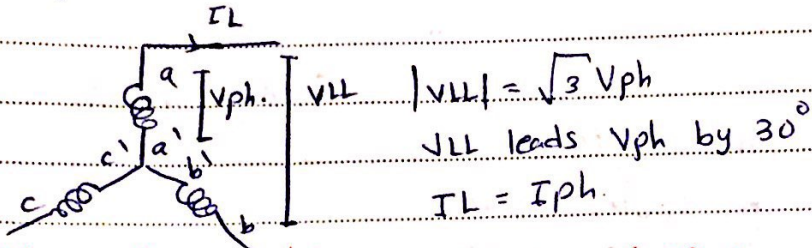 IL
a
Vph.
VLL
|VLL| = √3 Vph
VLL leads Vph by 30°
c'
a'
b'
IL = Iph.
c
b